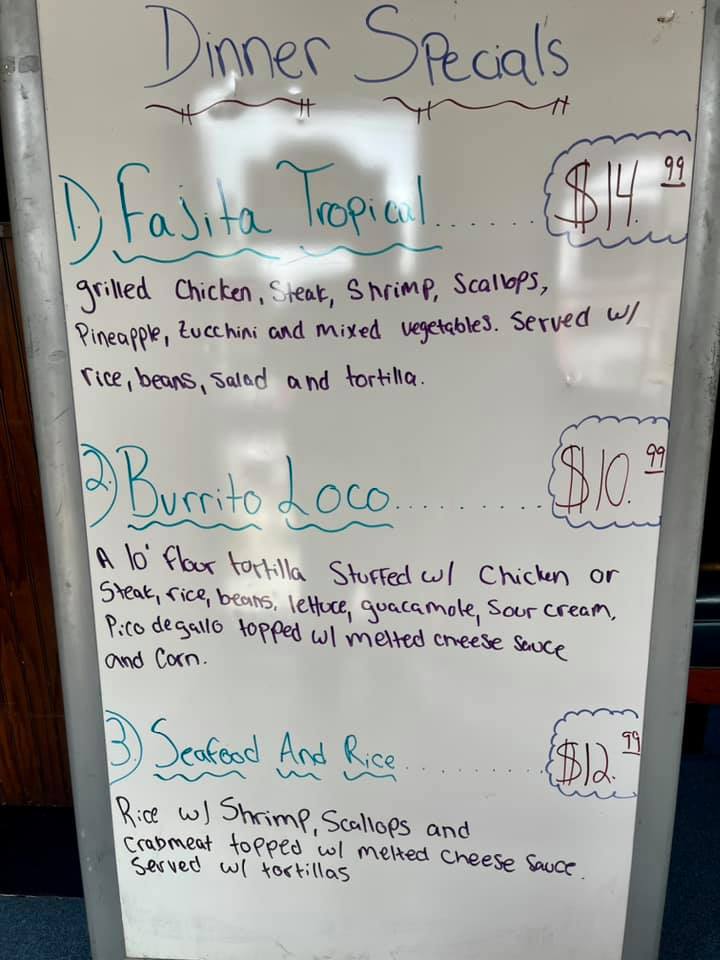 Dinner Specials
1) Fajita Tropical...... $14.99
grilled Chicken, Steak, Shrimp, Scallops,
Pineapple, Zucchini and mixed vegetables. Served w/
rice, beans, salad and tortilla.
2) Burrito Loco.......... $10.99
A 10' flour tortilla Stuffed w/ Chicken or
Steak, rice, beans, lettuce, guacamole, Sour cream,
Pico de gallo topped w/ melted cheese sauce
and Corn.
3) Seafood And Rice.......... $12.99
Rice w/ Shrimp, Scallops and
Crabmeat topped w/ melted Cheese Sauce.
Served w/ tortillas